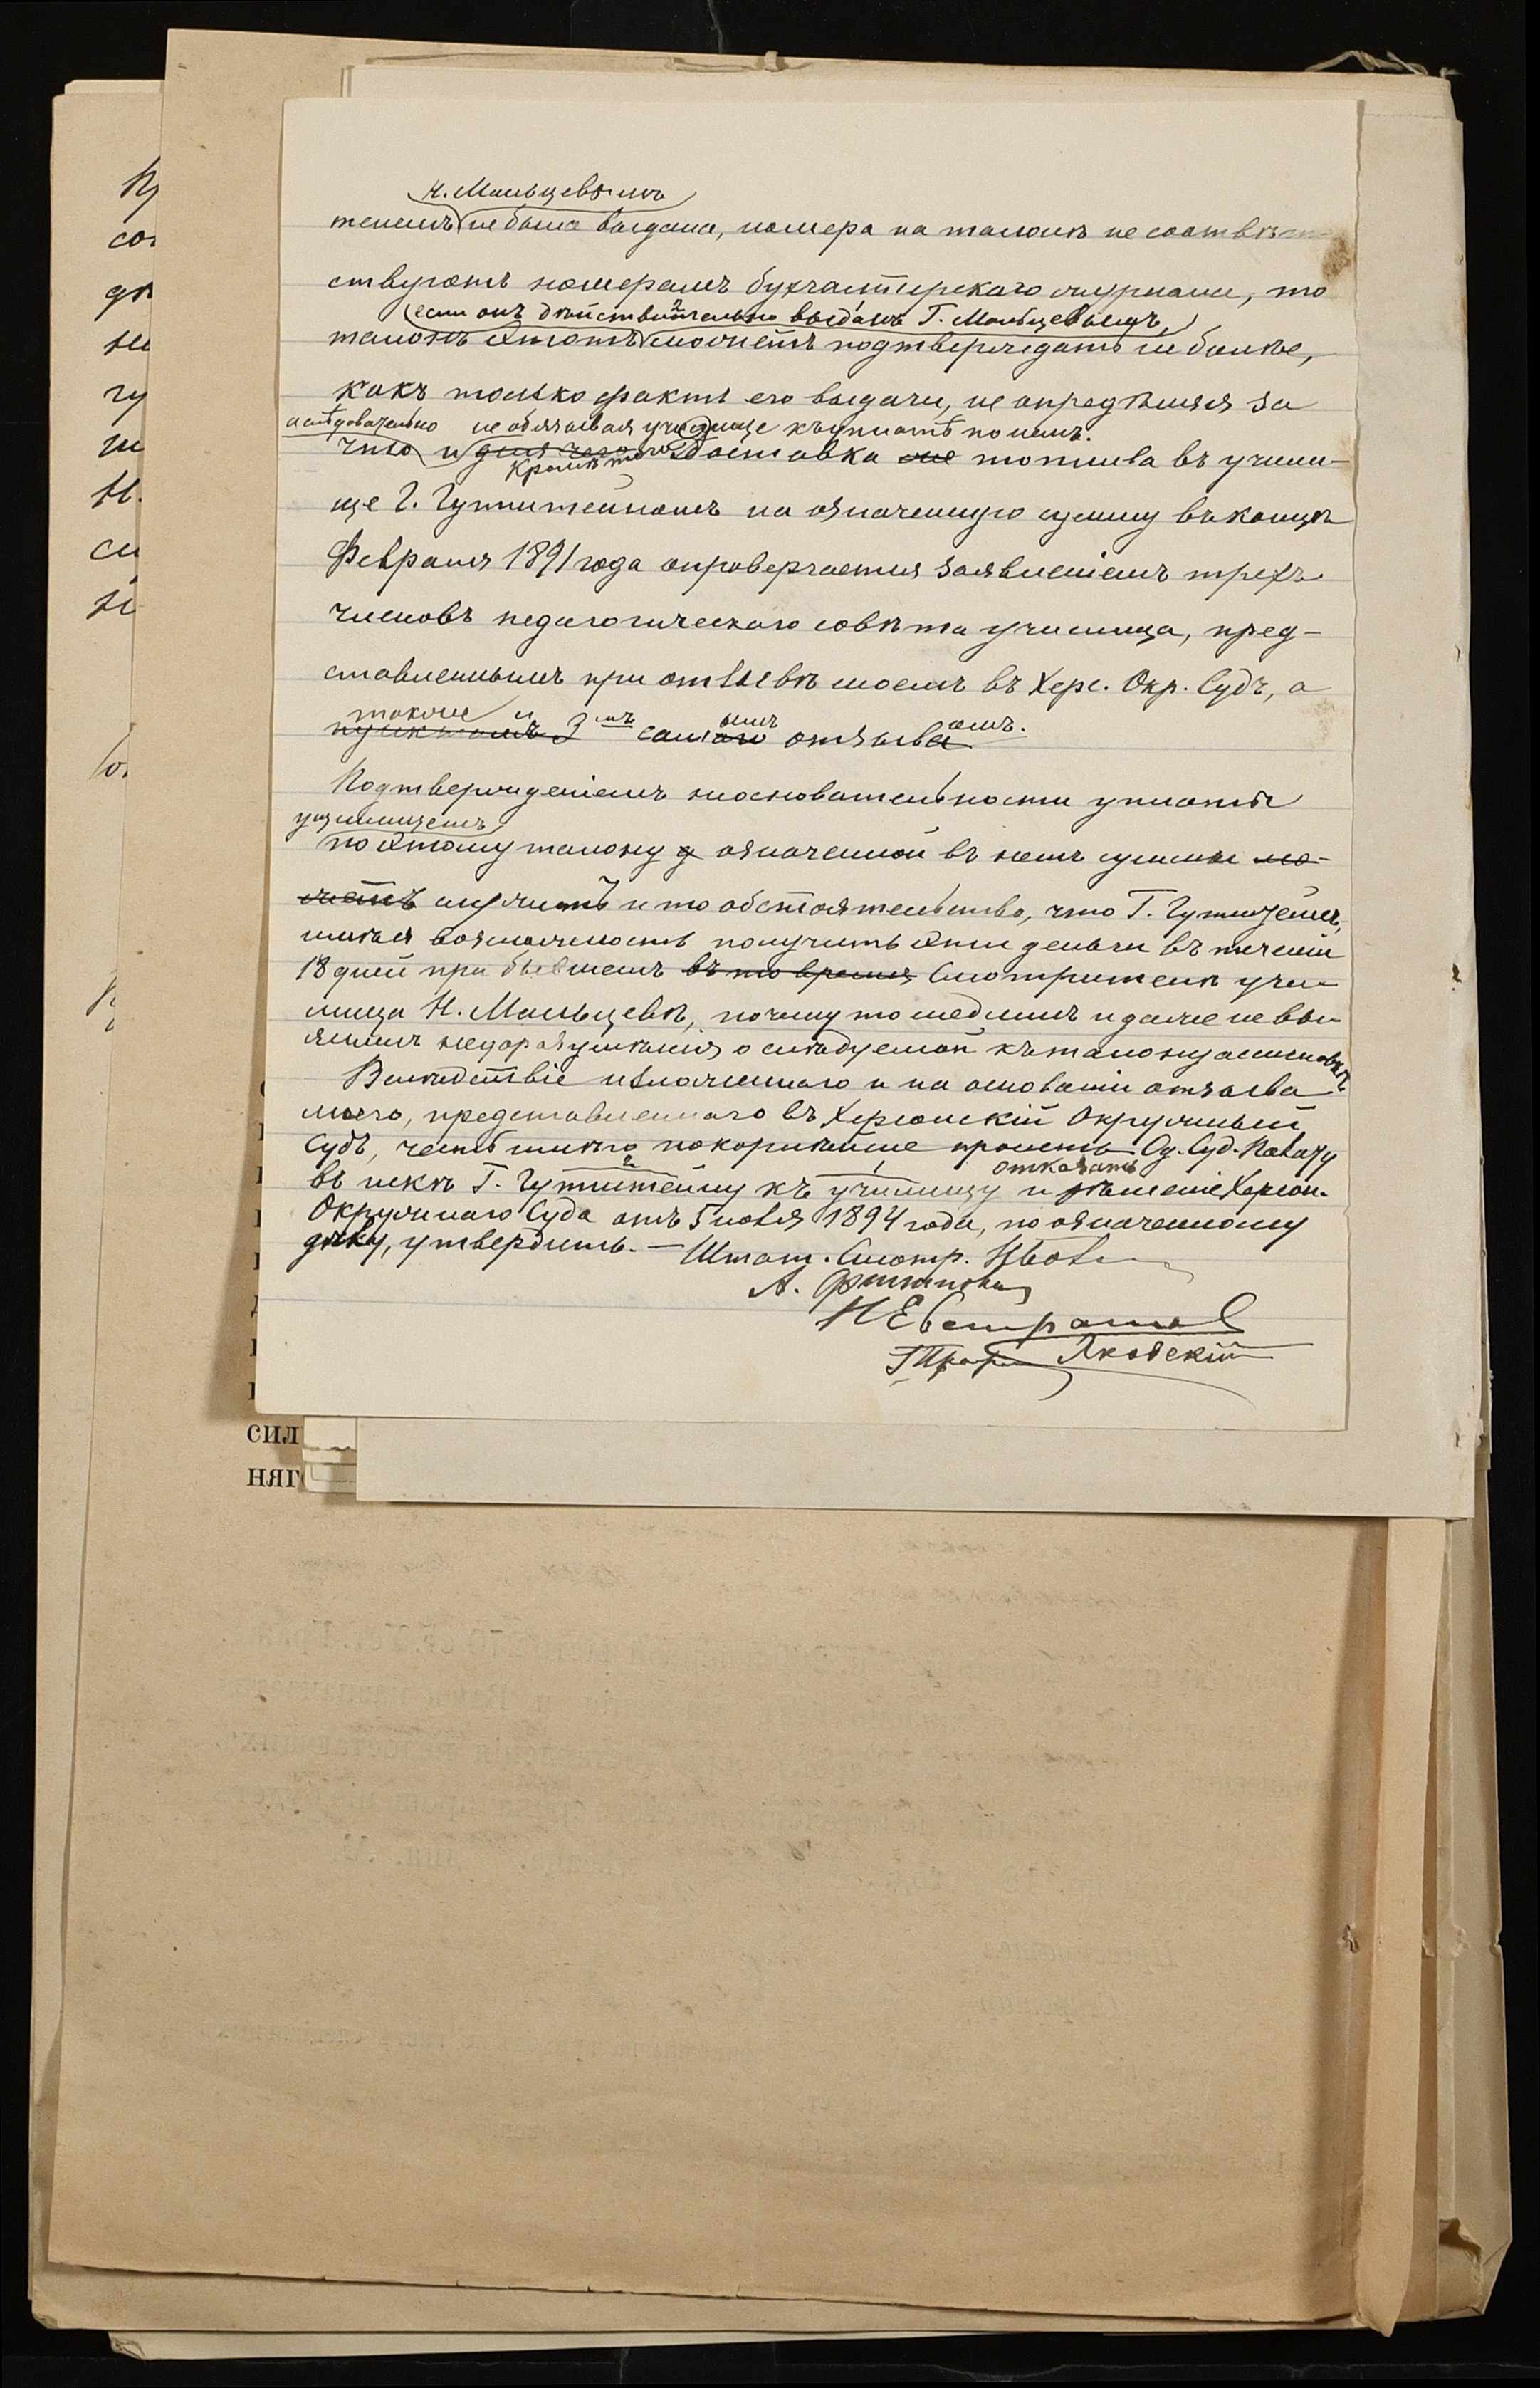 Н. Мальцевымъ
телемъ не была выдана, номера на талонѣ не соотвѣт-
ствуютъ номерамъ бухгалтерскаго журнала, то
(если онъ дѣйствительно выданъ Г. Мальцевымъ)
талонъ этотъ можетъ подтверждать не болѣе,
какъ только фактъ его выдачи, не опредѣляя за
а слѣдовательно не обязывая училище къ уплатѣ по немъ.
что и для чего
Кромѣ того доставка не топлива въ учили-
ще Г. Гутштейномъ на означенную сумму въ концѣ
Февраля 1891 года опровергается заявленіемъ трехъ
членовъ педагогическаго совѣта училища, пред-
ставленнымъ при отзывѣ моемъ въ Херс. Окр. Судъ, а
также и
пунктомъ 3мъ самаго отзыва
ымъ омъ.
Подтвержденіемъ неосновательности уплаты
училищемъ
по этому талону означенной въ немъ суммы мо-
жетъ служить и то обстоятельство, что Г. Гутштейнъ,
имѣя возможность получить эти деньги въ теченіи
18 дней при бывшемъ въ то время Смотрителѣ учи-
лища Н. Мальцевѣ, почему то медлилъ и даже не вы-
яснилъ недоразумѣнія о слѣдуемой къ талону ассигновкѣ
Вслѣдствіе изложеннаго и на основаніи отзыва
моего, представленнаго въ Херсонскій Окружный
Судъ, честь имѣю покорнѣйше просить Од. Суд. Палату
отказать
въ искѣ Г. Гутштейну къ училищу и рѣшеніе Херсон.
Окружнаго Суда отъ 5 ноября 1894 года, по означенному
дѣлу, утвердить. — Штат. Смотр.
А. Филиппов
Н Евстратов
Яковскій
сил
няг